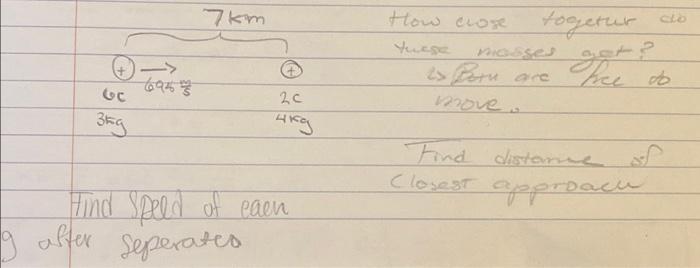 7km
How close together do
these masses get?
↳ Both are free to
move.
(+) → (+)
695 m/s
6C 2C
3kg 4kg
Find distance of
Closest approach
Find Speed of each
g after seperates